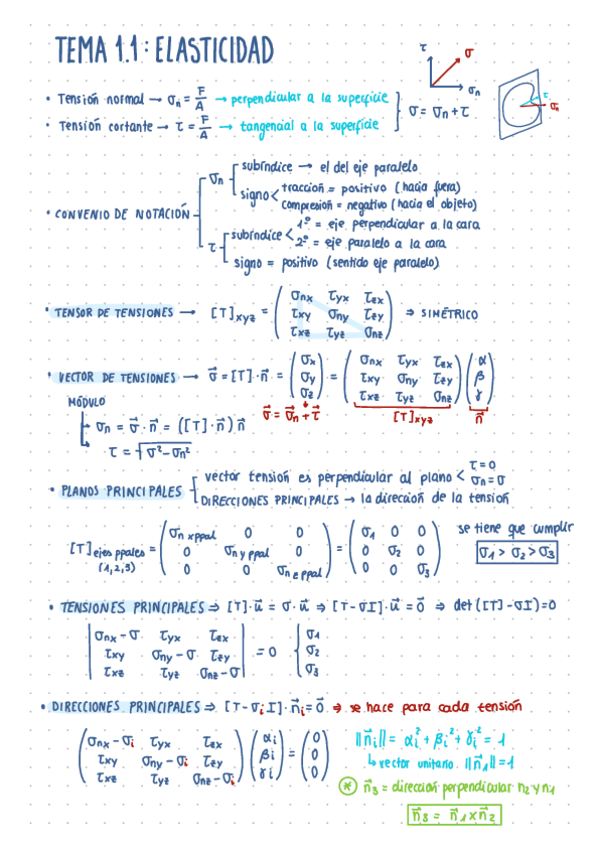 TEMA 1.1: ELASTICIDAD
τ σ σn
τ σn
• Tensión normal → σn = F/A → perpendicular a la superficie
• Tensión cortante → τ = F/A → tangencial a la superficie
σ = σn + τ
• CONVENIO DE NOTACIÓN
σn
subíndice → el del eje paralelo
signo < tracción = positivo (hacia fuera)
compresión = negativo (hacia el objeto)
τ
subíndice < 1º = eje perpendicular a la cara
2º = eje paralelo a la cara
signo = positivo (sentido eje paralelo)
• TENSOR DE TENSIONES → [T]xyz = ( σnx τyx τzx ) ⇒ SIMÉTRICO
τxy σny τzy
τxz τyz σnz
• VECTOR DE TENSIONES → σ⃗ = [T]·n⃗ = ( σx ) = ( σnx τyx τzx ) ( α )
σy τxy σny τzy β
σz τxz τyz σnz γ
σ⃗ = σ⃗n + τ⃗ [T]xyz n⃗
MÓDULO
→ σn = σ⃗ · n⃗ = ([T]·n⃗) n⃗
→ τ = √σ²-σn²
• PLANOS PRINCIPALES
vector tensión es perpendicular al plano < τ=0
σn=σ
DIRECCIONES PRINCIPALES → la dirección de la tensión
[T] ejes ppales (1,2,3) = ( σn xppal 0 0 ) = ( σ1 0 0 )
0 σn y ppal 0 0 σ2 0
0 0 σn z ppal 0 0 σ3
se tiene que cumplir
σ1 > σ2 > σ3
• TENSIONES PRINCIPALES ⇒ [T]·u⃗ = σ·u⃗ ⇒ [T-σI]·u⃗ = 0⃗ ⇒ det([T]-σI)=0
| σnx - σ τyx τzx | = 0 { σ1
τxy σny - σ τzy σ2
τxz τyz σnz - σ σ3
• DIRECCIONES PRINCIPALES ⇒ [T-σiI]·n⃗i = 0⃗ ⇒ se hace para cada tensión
( σnx - σi τyx τzx ) ( αi ) = ( 0 )
τxy σny - σi τzy βi 0
τxz τyz σnz - σi γi 0
||n⃗i|| = αi² + βi² + γi² = 1
↳ vector unitario ||n⃗1||=1
* n⃗3 = dirección perpendicular n2 y n1
n⃗3 = n⃗1 x n⃗2